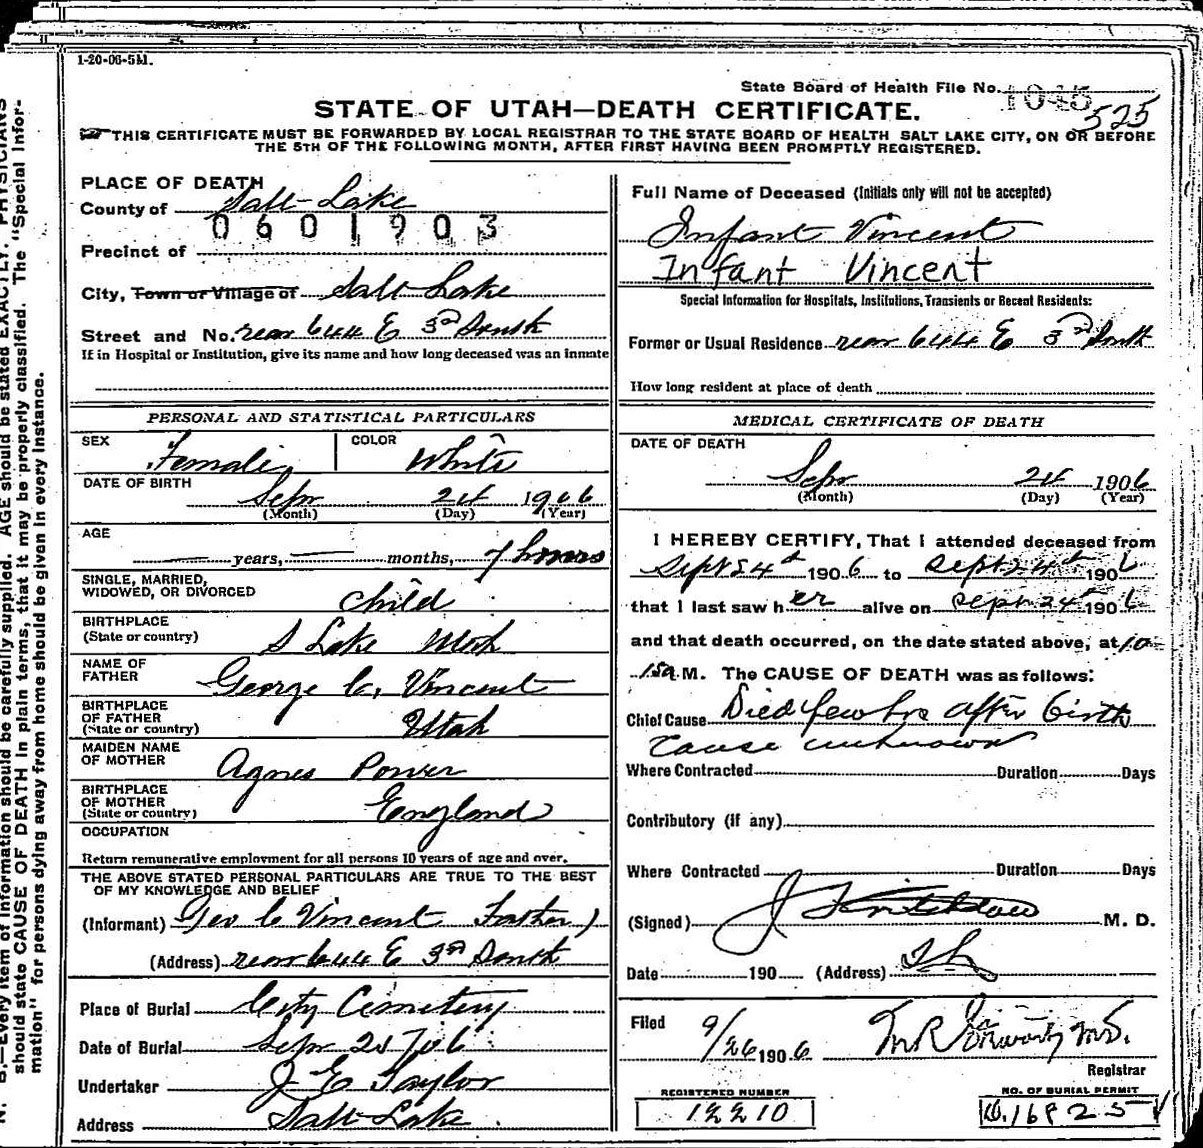 1-20-06-5M.
State Board of Health File No. 1045 525
STATE OF UTAH—DEATH CERTIFICATE.
THIS CERTIFICATE MUST BE FORWARDED BY LOCAL REGISTRAR TO THE STATE BOARD OF HEALTH SALT LAKE CITY, ON OR BEFORE
THE 5TH OF THE FOLLOWING MONTH, AFTER FIRST HAVING BEEN PROMPTLY REGISTERED.
N. B.—Every item of information should be carefully supplied. AGE should be stated EXACTLY. PHYSICIANS
should state CAUSE OF DEATH in plain terms, that it may be properly classified. The "Special Infor-
mation" for persons dying away from home should be given in every instance.
PLACE OF DEATH
County of Salt Lake
0601903
Precinct of
City, Town or Village of Salt Lake
Street and No. rear 644 E 3rd South
If in Hospital or Institution, give its name and how long deceased was an inmate
PERSONAL AND STATISTICAL PARTICULARS
SEX Female COLOR White
DATE OF BIRTH
Sepr 24 1906
(Month) (Day) (Year)
AGE
years, months, 7 hours
SINGLE, MARRIED,
WIDOWED, OR DIVORCED Child
BIRTHPLACE
(State or country) S Lake
NAME OF
FATHER George C. Vincent
BIRTHPLACE
OF FATHER
(State or country) Utah
MAIDEN NAME
OF MOTHER Agnes Power
BIRTHPLACE
OF MOTHER
(State or country) England
OCCUPATION
Return remunerative employment for all persons 10 years of age and over.
THE ABOVE STATED PERSONAL PARTICULARS ARE TRUE TO THE BEST
OF MY KNOWLEDGE AND BELIEF
(Informant) Geo C Vincent Father)
(Address) rear 644 E 3rd South
Place of Burial City Cemetery
Date of Burial Sepr 25 706
Undertaker J E Taylor
Address Salt Lake
Full Name of Deceased (Initials only will not be accepted)
Infant Vincent
Infant Vincent
Special Information for Hospitals, Institutions, Transients or Recent Residents:
Former or Usual Residence rear 644 E 3rd South
How long resident at place of death
MEDICAL CERTIFICATE OF DEATH
DATE OF DEATH
Sepr 24 1906
(Month) (Day) (Year)
I HEREBY CERTIFY, That I attended deceased from
Sept 24th 1906 to Sept 24th 1906
that I last saw her alive on Sept 24th 1906
and that death occurred, on the date stated above, at 10
15a M. The CAUSE OF DEATH was as follows:
Chief Cause Died few hrs after birth
cause unknown
Where Contracted Duration Days
Contributory (if any)
Where Contracted Duration Days
(Signed) J M. D.
Date 190 (Address)
Filed 9/26 1906
Registrar
REGISTERED NUMBER
12210
NO. OF BURIAL PERMIT
16825